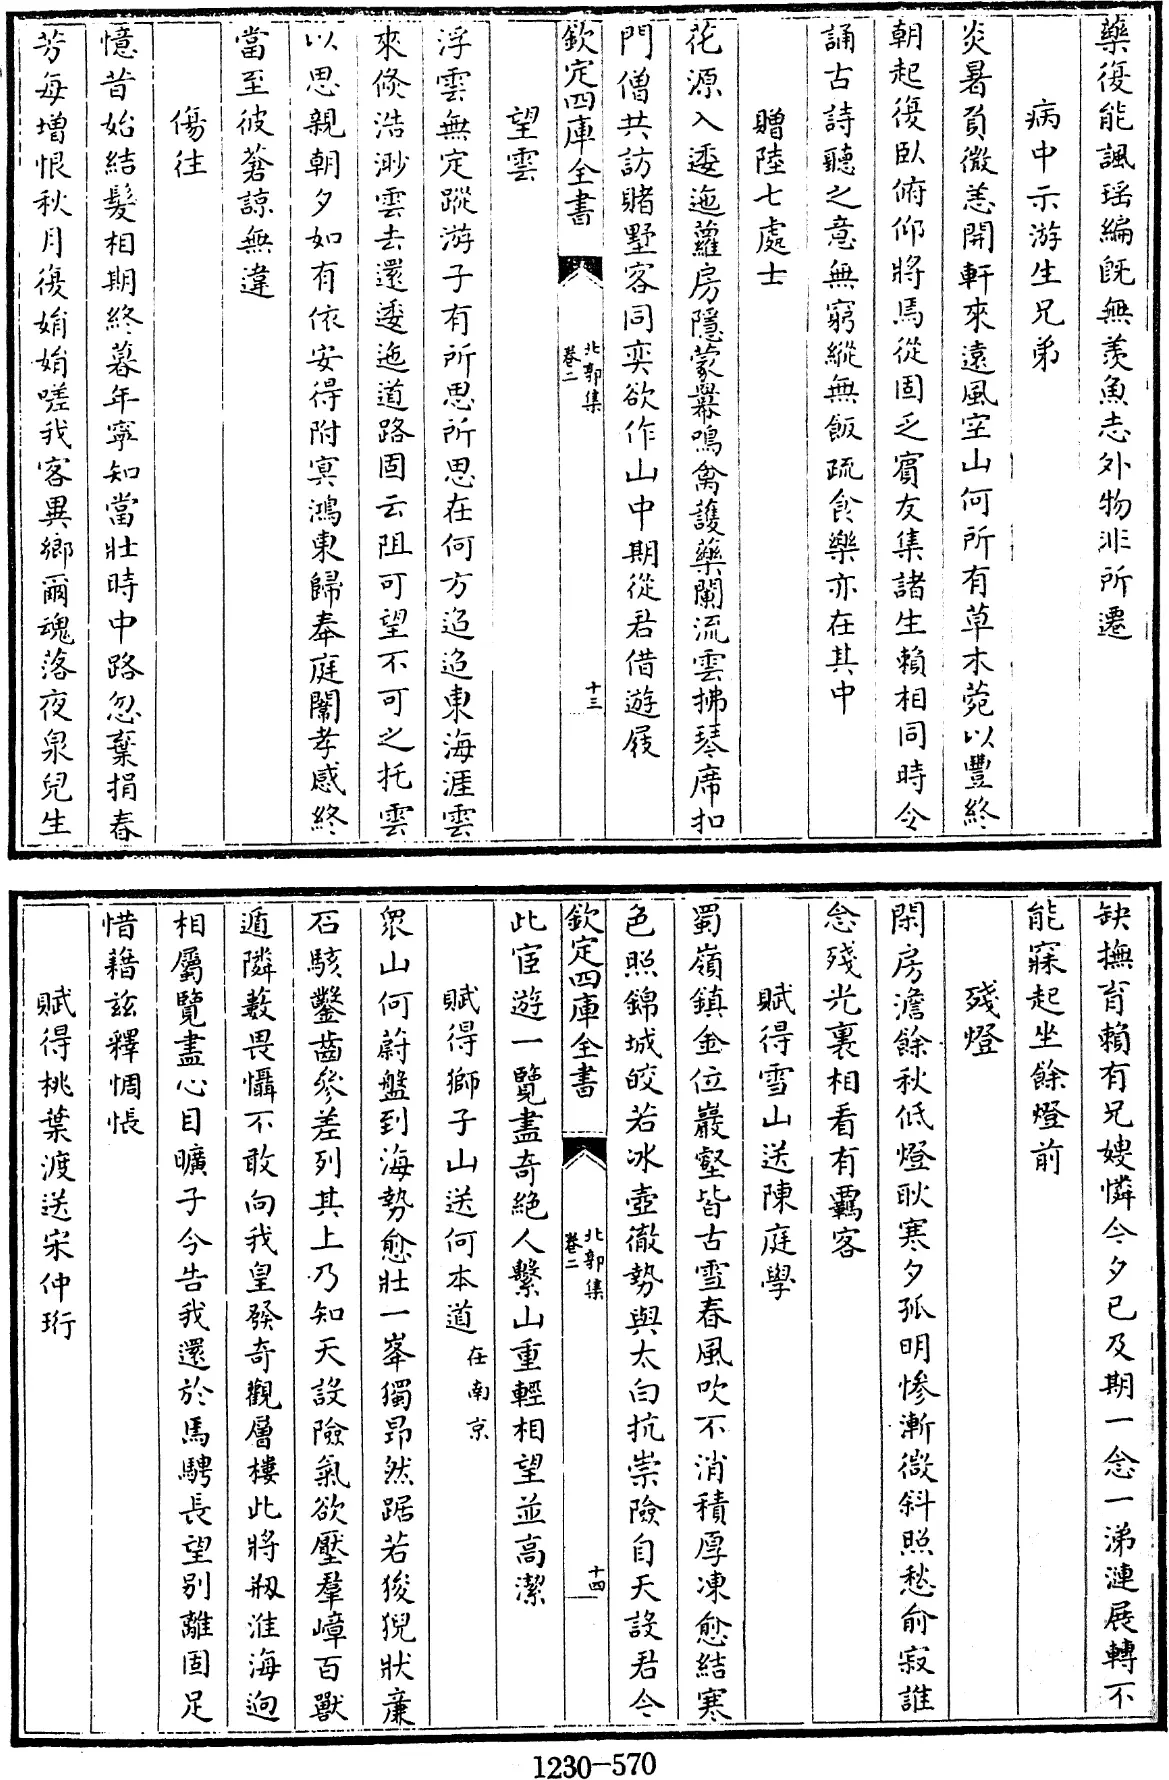 藥復能諷瑶編旣無羨魚志外物非所遷
病中示游生兄弟
炎暑負微恙開軒來遠風空山何所有草木菀以豐終
朝起復臥俯仰將焉從固乏賓友集諸生賴相同時令
誦古詩聽之意無窮縱無飯疏食樂亦在其中
贈陸七處士
花源入逶迤蘿房隱蒙羃鳴禽護藥闌流雲拂琴席扣
門僧共訪賭墅客同奕欲作山中期從君借遊屐
欽定四庫全書
北郭集
卷二
十三
望雲
浮雲無定蹤游子有所思所思在何方迢迢東海涯雲
來倏浩渺雲去還逶迤道路固云阻可望不可之托雲
以思親朝夕如有依安得附冥鴻東歸奉庭闈孝感終
當至彼蒼諒無違
傷往
憶昔始結髮相期終暮年寧知當壯時中路忽棄捐春
芳每增恨秋月復娟娟嗟我客異鄉爾魂落夜泉兒生
缺撫育賴有兄嫂憐今夕已及期一念一涕漣展轉不
能寐起坐餘燈前
殘燈
閑房澹餘秋低燈耿寒夕孤明慘漸微斜照愁俞寂誰
念殘光裏相看有羈客
賦得雪山送陳庭學
蜀嶺鎮金位巖壑皆古雪春風吹不消積厚凍愈結寒
色照錦城皎若冰壺徹勢與太白抗崇險自天設君今
欽定四庫全書
北郭集
卷二
十四
此宦遊一覽盡奇絕人繫山重輕相望並高潔
賦得獅子山送何本道在南京
眾山何蔚盤到海勢愈壯一峯獨昂然踞若狻猊狀廉
石駭鑿齒參差列其上乃知天設險氣欲壓羣嶂百獸
遁隣藪畏懾不敢向我皇發奇觀層樓此將剏淮海迥
相屬覽盡心目曠子今告我還於馬騁長望別離固足
惜藉茲釋惆悵
賦得桃葉渡送宋仲珩
1230-570